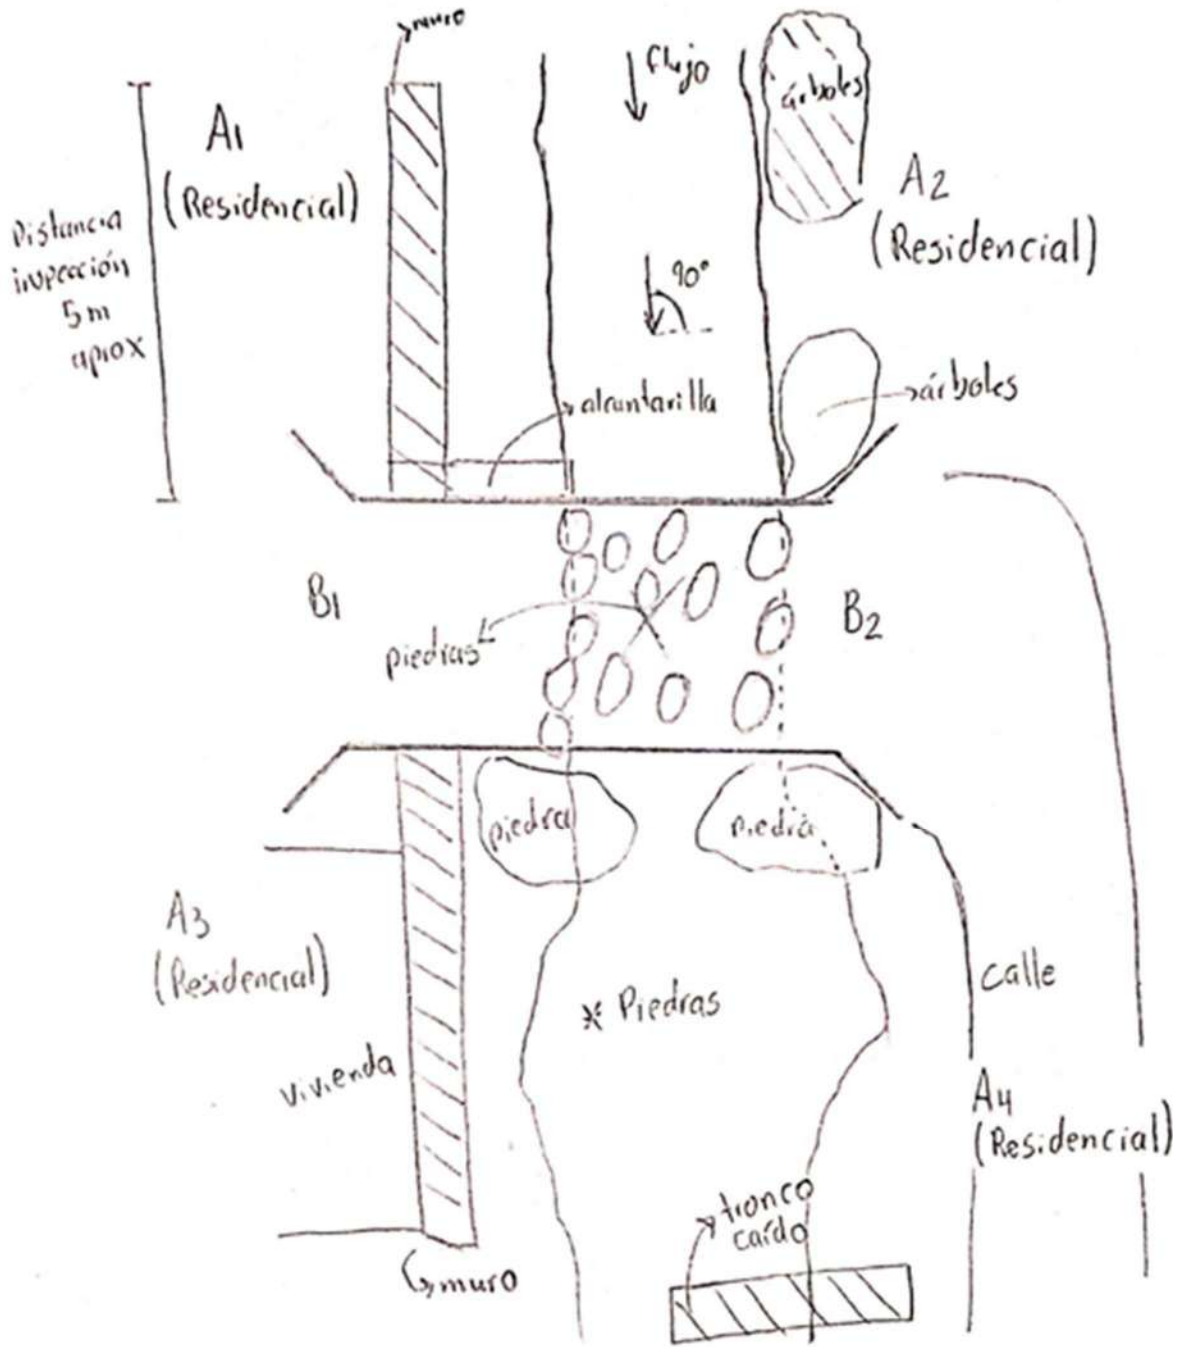 muro
flujo
árboles
A1
(Residencial)
A2
(Residencial)
Distancia
inspección
5m
aprox
90°
alcantarilla
árboles
B1
B2
piedras
piedra
piedra
A3
(Residencial)
* Piedras
calle
vivienda
A4
(Residencial)
tronco
caído
muro